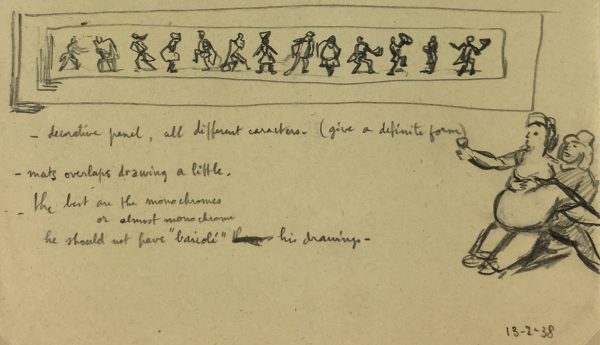 - decorative panel, all different caracters. (give a definite form)
- mats overlaps drawing a little.
- the best are the monochromes
or almost monochrome
he should not have "bariolé" his drawings -
13-2-38